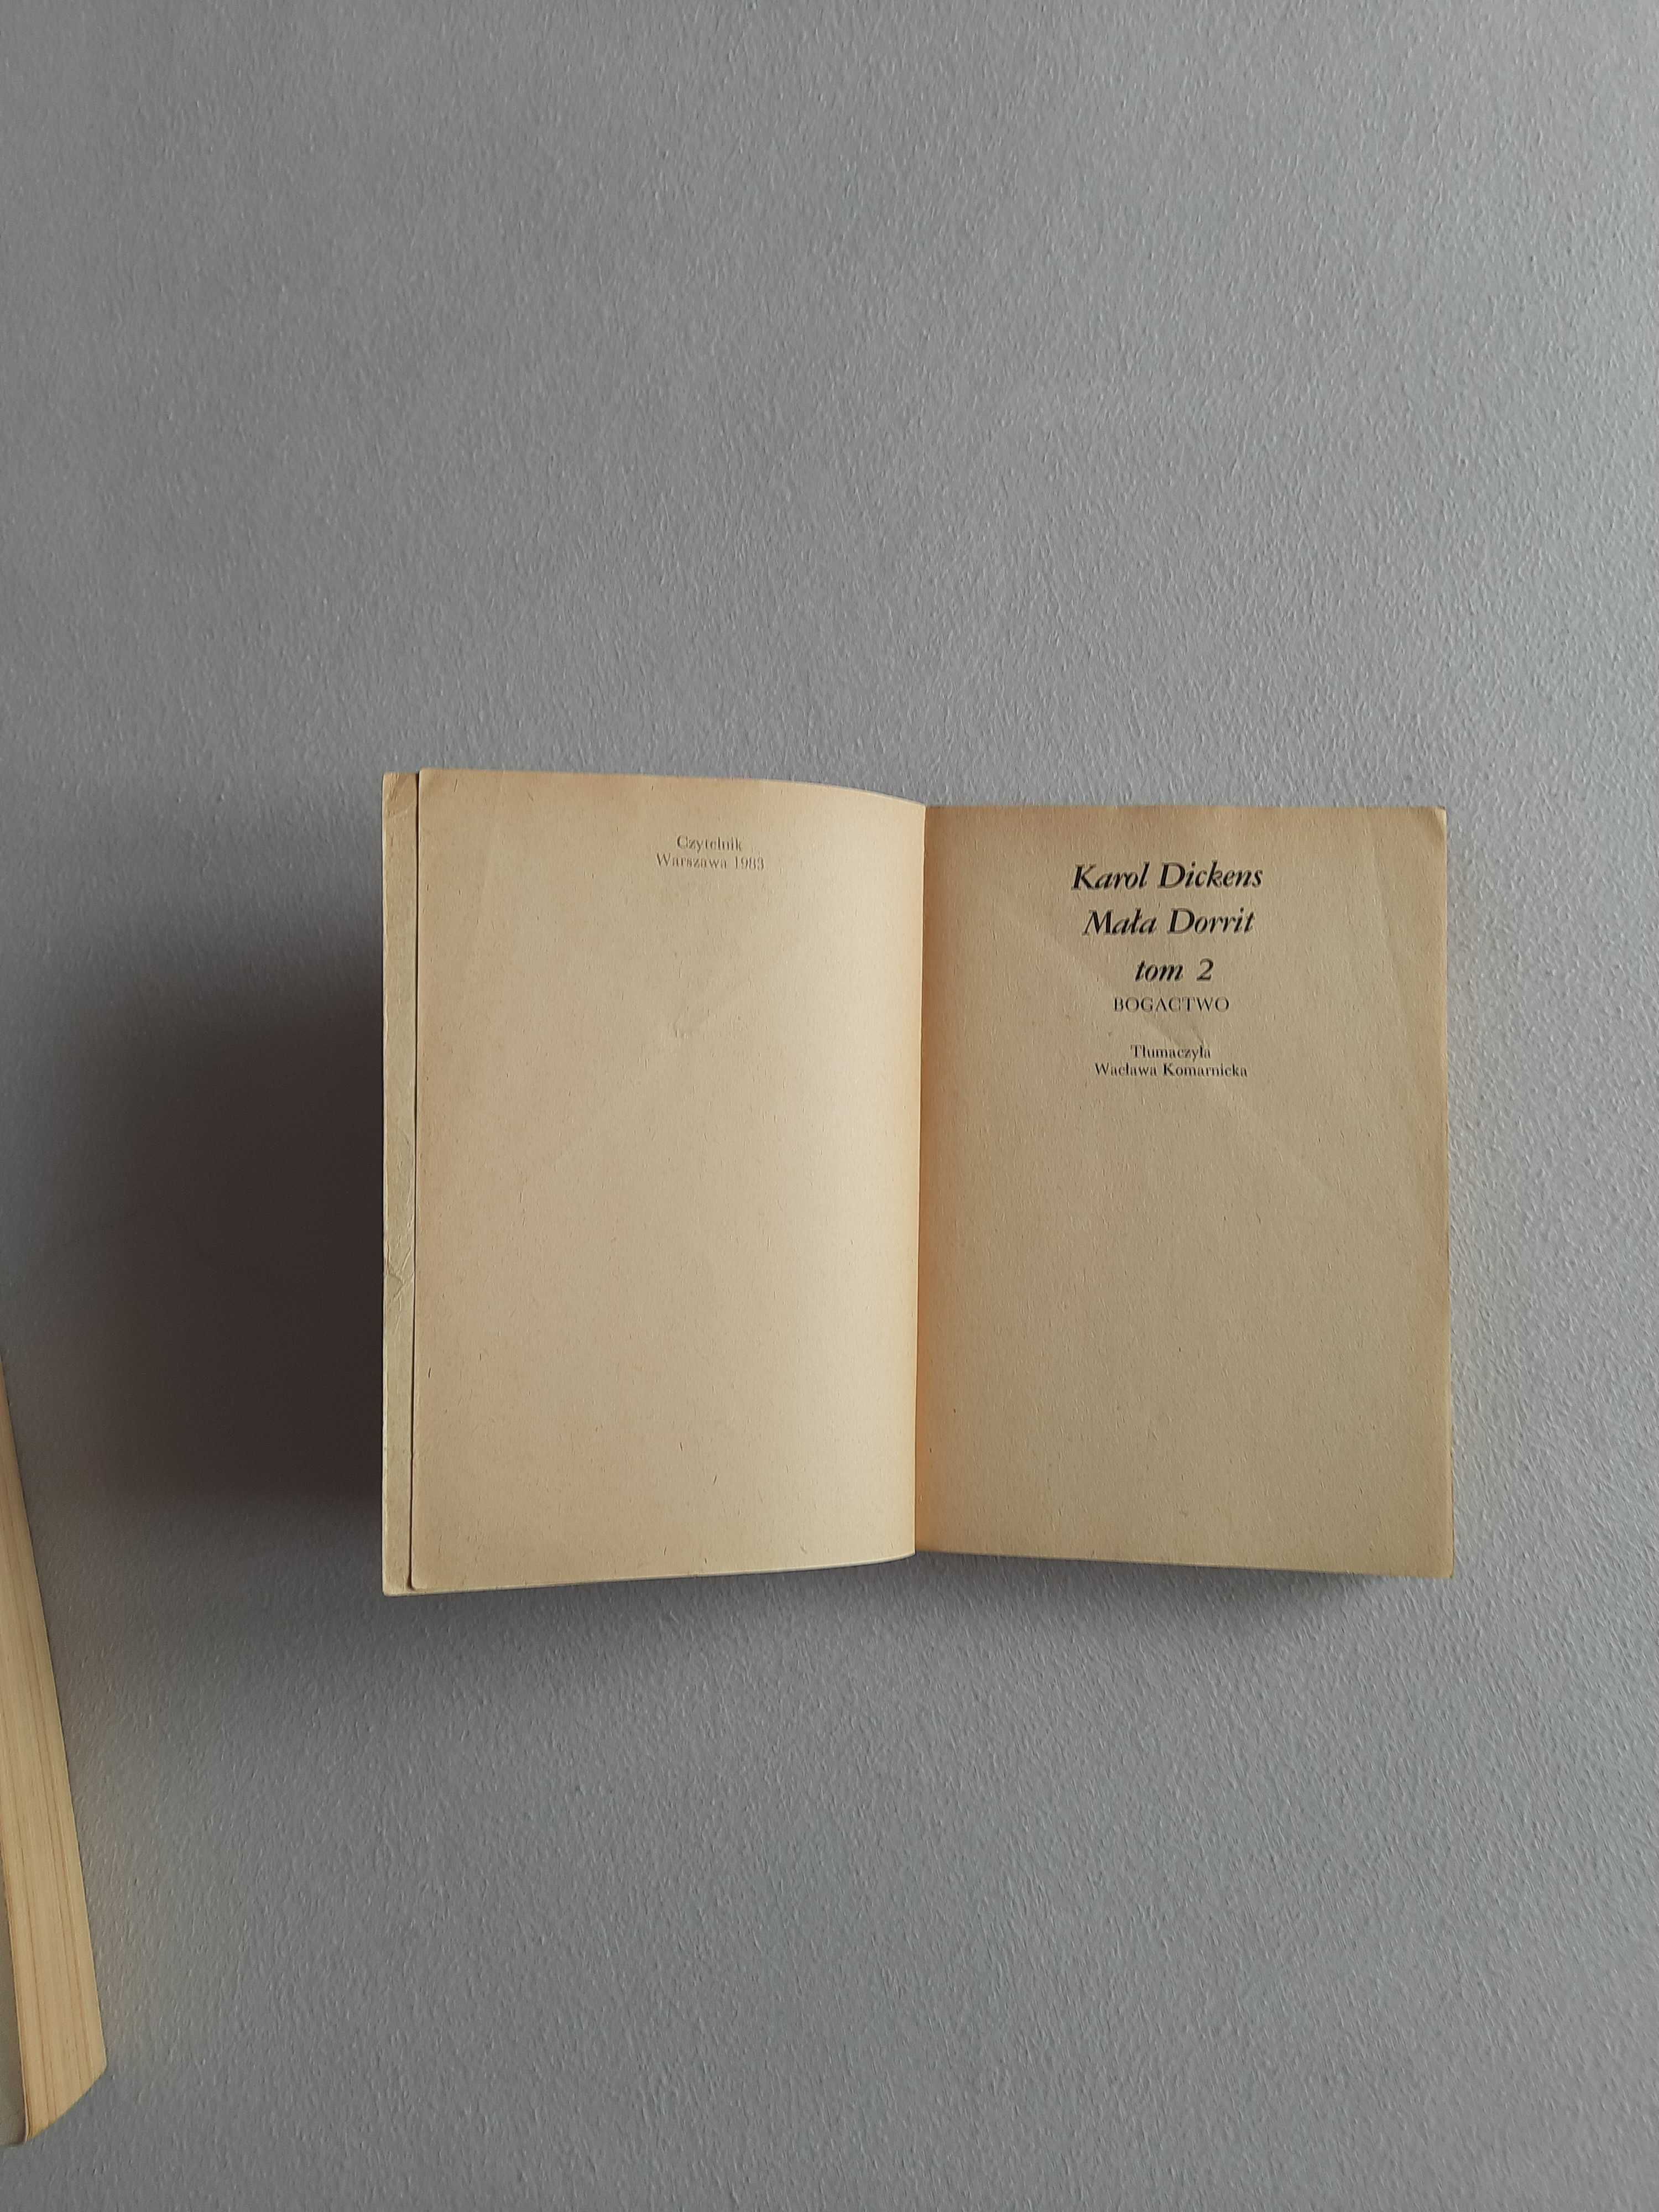 Czytelnik
Warszawa 1983
Karol Dickens
Mała Dorrit
tom 2
BOGACTWO
Tłumaczyła
Wacława Komarnicka